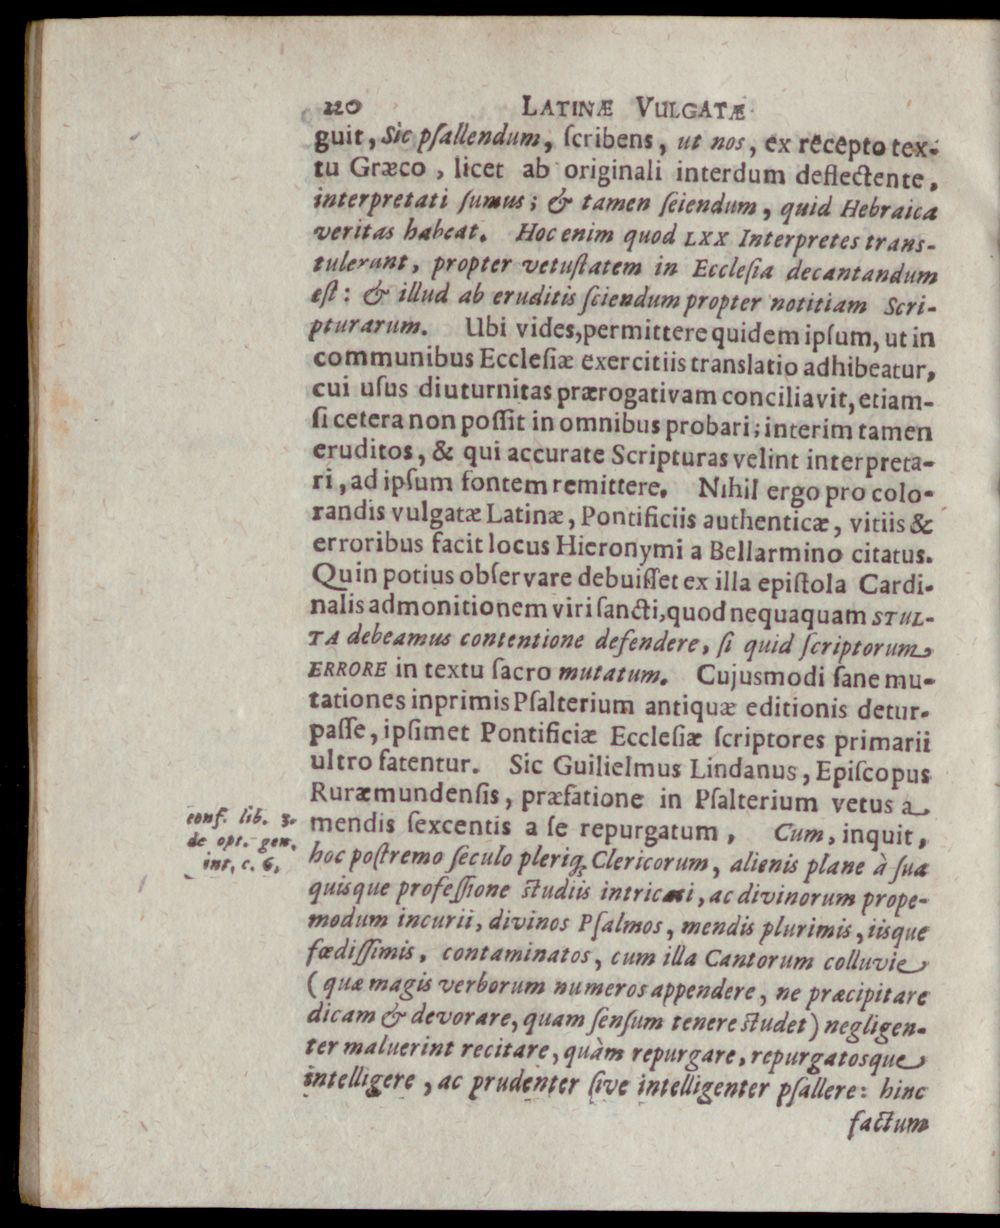 220 LATINÆ VULGATÆ
guit, Sic pſallendum, ſcribens, ut nos, ex recepto tex-
tu Græco, licet ab originali interdum deflectente,
interpretati ſumus; & tamen ſciendum, quid Hebraica
veritas habeat. Hoc enim quod LXX Interpretes trans-
tulerunt, propter vetuſtatem in Eccleſia decantandum
eſt: & illud ab eruditis ſciendum propter notitiam Scri-
pturarum. Ubi vides, permittere quidem ipſum, ut in
communibus Eccleſiæ exercitiis translatio adhibeatur,
cui uſus diuturnitas prærogativam conciliavit, etiam-
ſi cetera non poſſit in omnibus probari; interim tamen
eruditos, & qui accurate Scripturas velint interpreta-
ri, ad ipſum fontem remittere. Nihil ergo pro colo-
randis vulgatæ Latinæ, Pontificiis authenticæ, vitiis &
erroribus facit locus Hieronymi a Bellarmino citatus.
Quin potius obſervare debuiſſet ex illa epiſtola Cardi-
nalis admonitionem viri ſancti, quod nequaquam STUL-
TA debeamus contentione defendere, ſi quid ſcriptorum
ERRORE in textu ſacro mutatum. Cujusmodi ſane mu-
tationes inprimis Pſalterium antiquæ editionis detur-
paſſe, ipſimet Pontificiæ Eccleſiæ ſcriptores primarii
ultro fatentur. Sic Guilielmus Lindanus, Epiſcopus
Ruræmundenſis, præfatione in Pſalterium vetus a
mendis ſexcentis a ſe repurgatum, Cum, inquit,
hoc poſtremo ſeculo pleriq; Clericorum, alienis plane à ſua
quisque profeſſione ſtudiis intricati, ac divinorum prope-
modum incurii, divinos Pſalmos, mendis plurimis, iisque
fœdiſſimis, contaminatos, cum illa Cantorum colluvie
(quæ magis verborum numeros appendere, ne præcipitare
dicam & devorare, quam ſenſum tenere ſtudet) negligen-
ter maluerint recitare, quàm repurgare, repurgatosque
intelligere, ac prudenter ſive intelligenter pſallere: hinc
factum
conf. lib. 3.
de opt. gen.
int. c. 6.